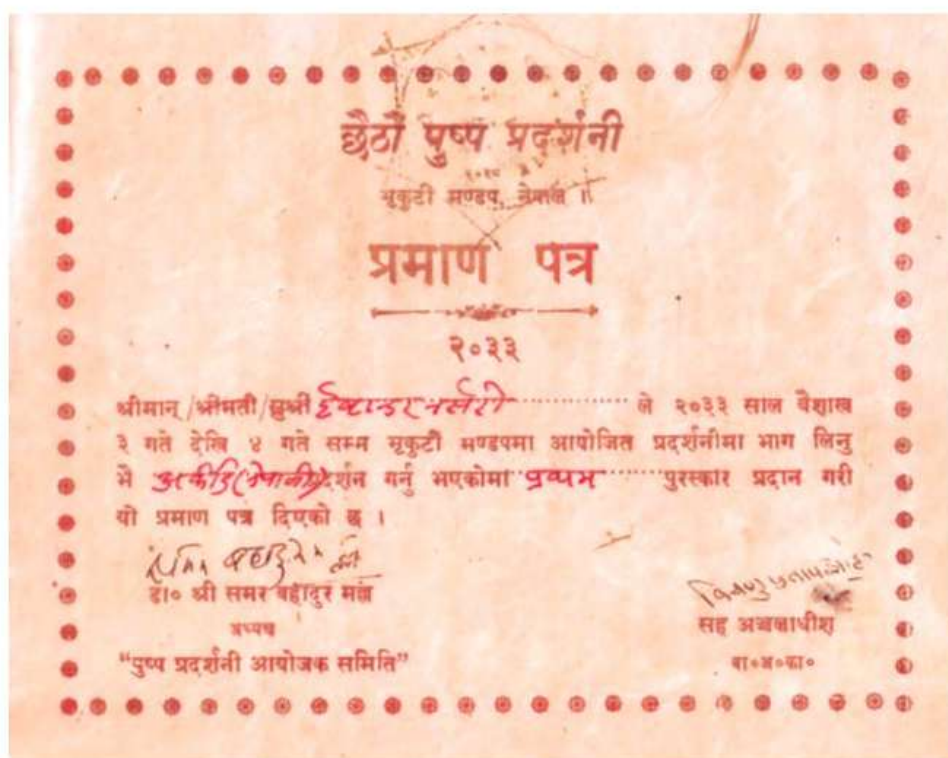 छैठौं पुष्प प्रदर्शनी
भृकुटी मण्डप, नेपाल ॥
प्रमाण पत्र
२०३३
श्रीमान्/श्रीमती/सुश्री नर्सरी ले २०३३ साल वैशाख
३ गते देखि ४ गते सम्म भृकुटी मण्डपमा आयोजित प्रदर्शनीमा भाग लिनु
भै दर्शन गर्नु भएकोमा प्रथम पुरस्कार प्रदान गरी
यो प्रमाण पत्र दिएको छ ।
डा० श्री समर बहादुर मल्ल
अध्यक्ष
“पुष्प प्रदर्शनी आयोजक समिति”
सह अञ्चलाधीश
बा०अ०का०